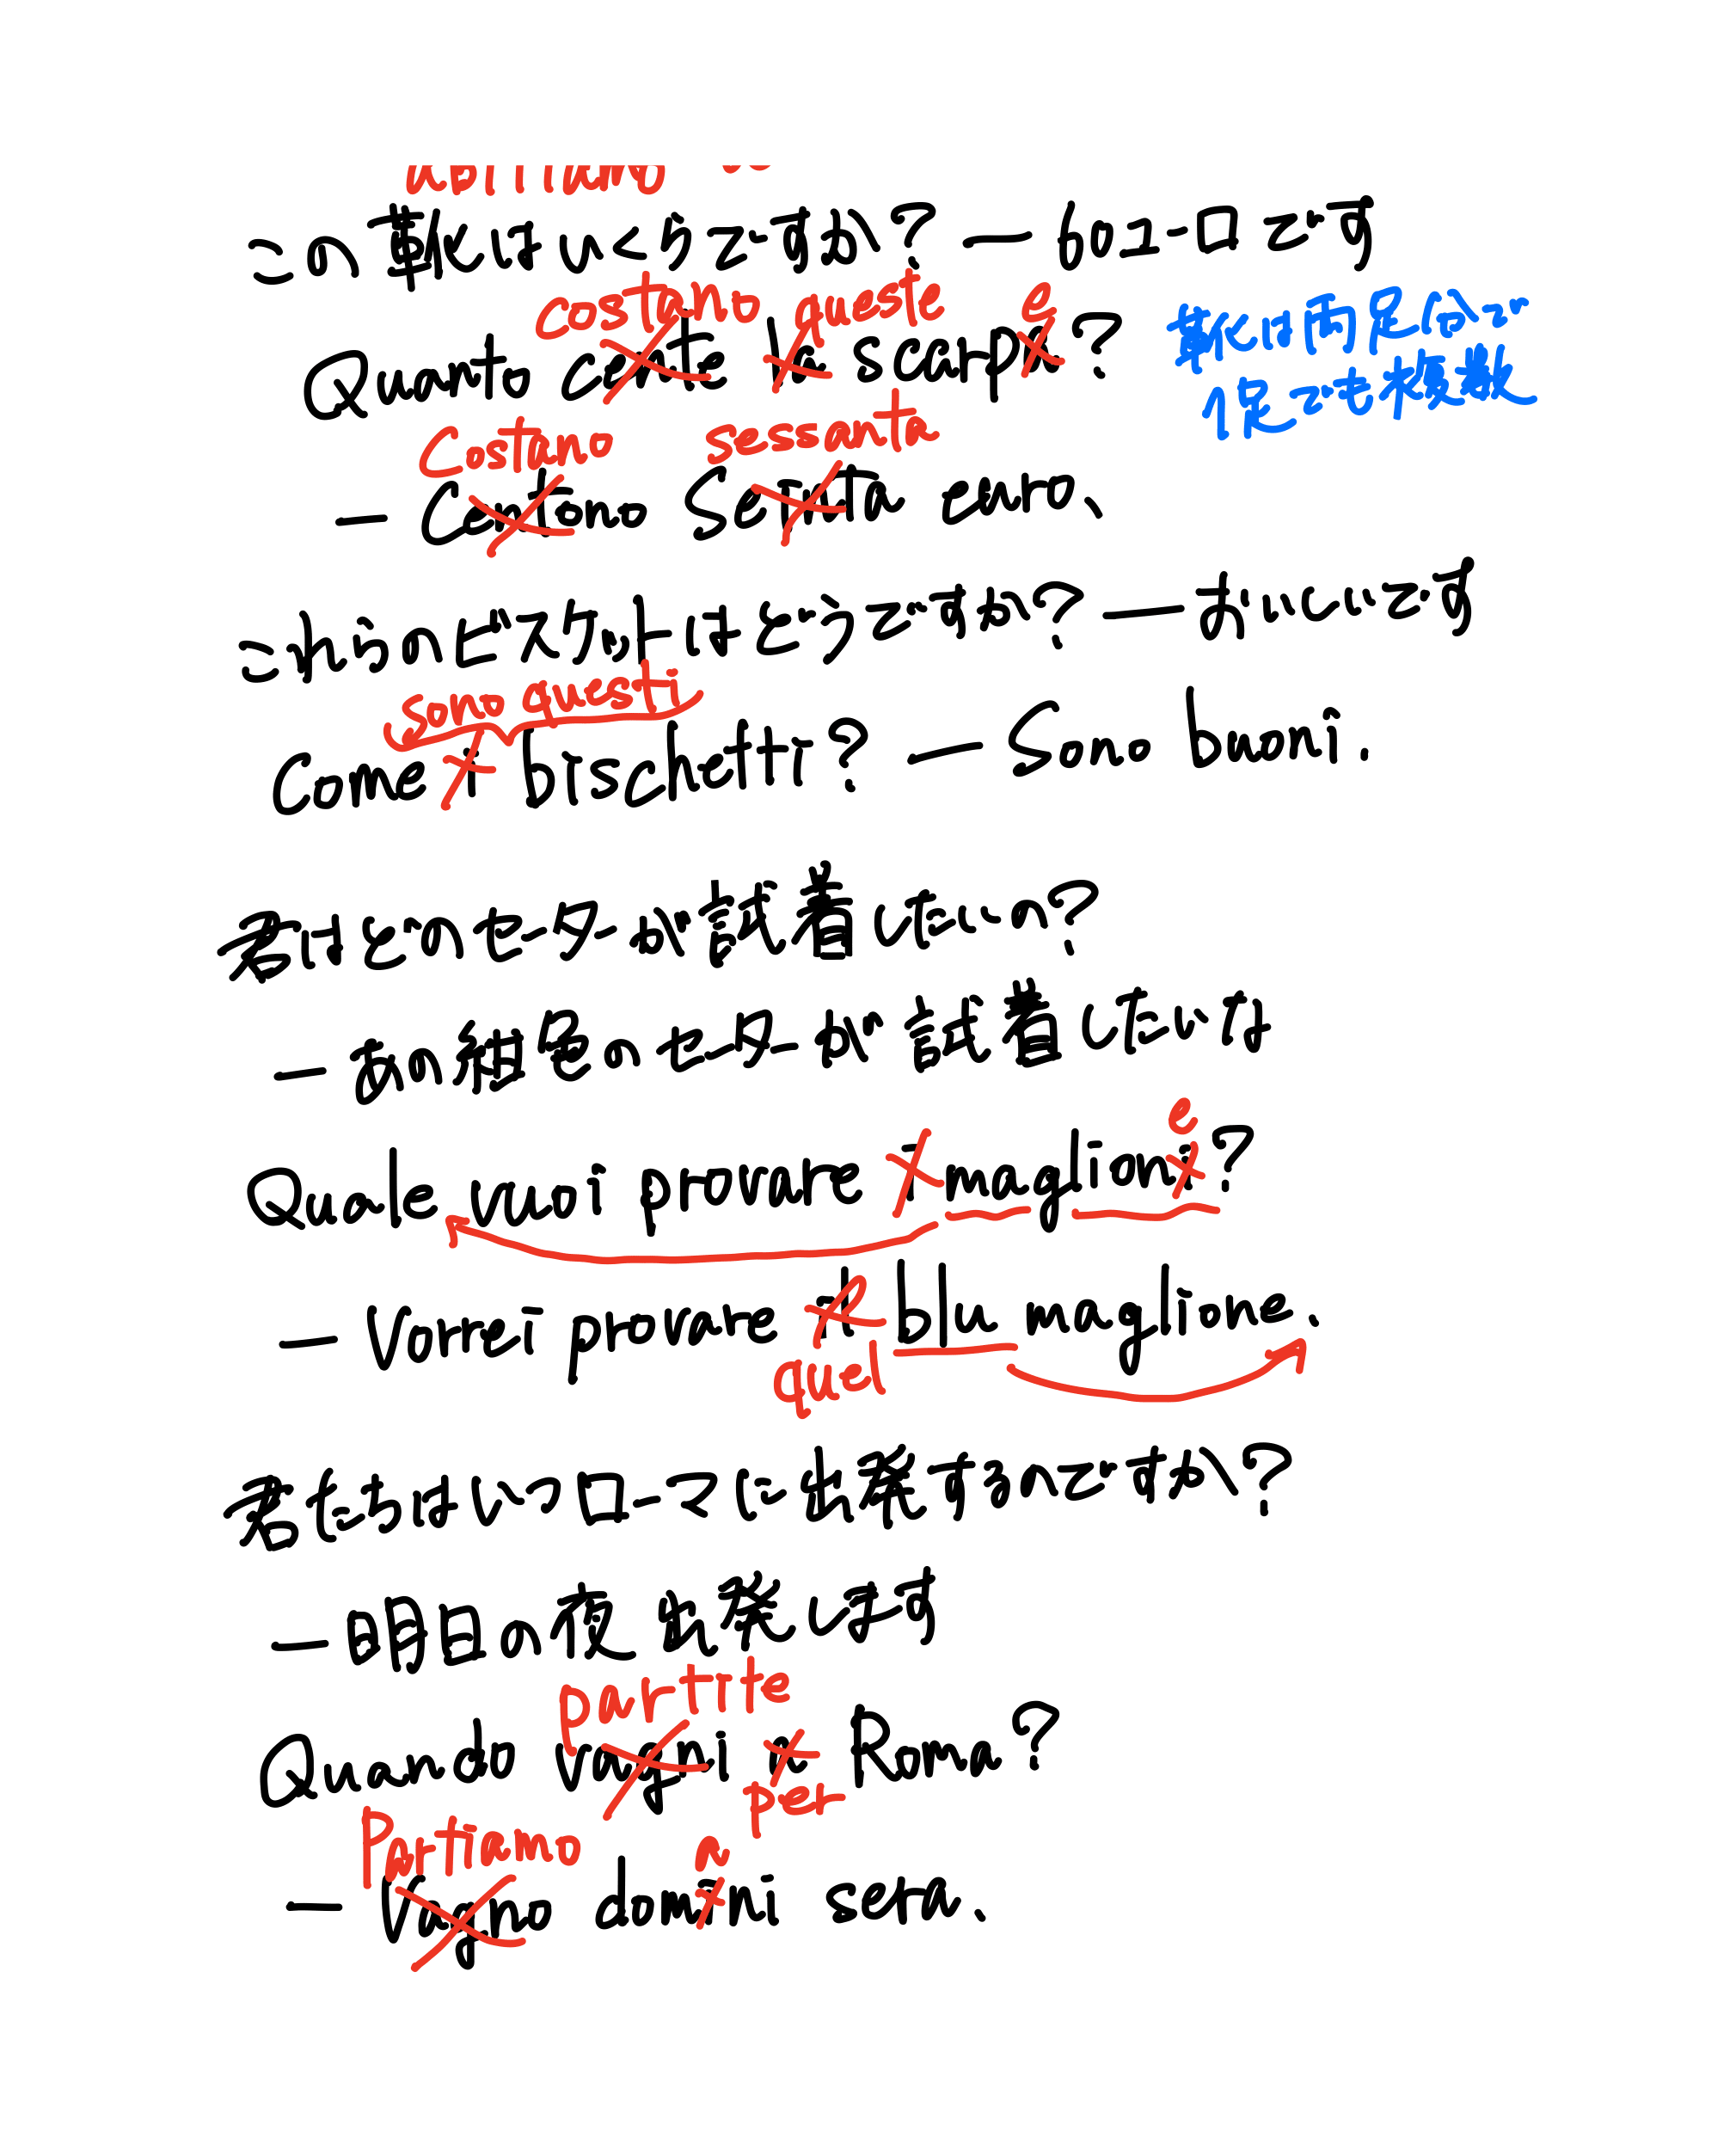 この靴はいくらですか? — 60ユーロです
costano queste e
Quanto cente la scarpa?
靴は両足なので
1足でも複数
Costano sessanta
— Centono Seinta euro.
これらのビスケットはどうですか? — おいしいです
sono questi
Come i bischetti? — Sono buoni.
君はどのセーターが試着したいの?
— あの紺色のセーターが試着したいな
e
Quale vuoi provare i maglioni?
— Vorrei provare il blu maglione.
quel
君たちはいつローマに出発するのですか?
— 明日の夜出発します
partite
Quando vagni a Roma?
per
Partiamo a
— Vagno domini sera.